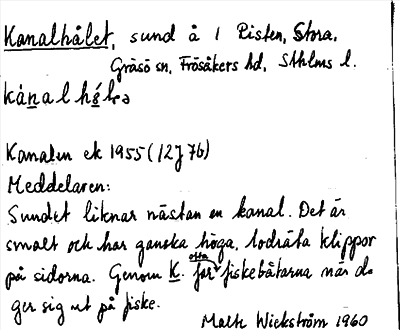 Kanalhålet, sund å 1 Pisten, Stora,
Gräsö sn, Frösåkers hd, Sthlms l.
kánalhólɐ
Kanalen ek 1955 (12J 7b)
Meddelaren:
Sundet liknar nästan en kanal. Det är
smalt och har ganska höga, lodräta klippor
på sidorna. Genom K. far ofta fiskebåtarna när de
ger sig ut på fiske.
Malte Wickström 1960